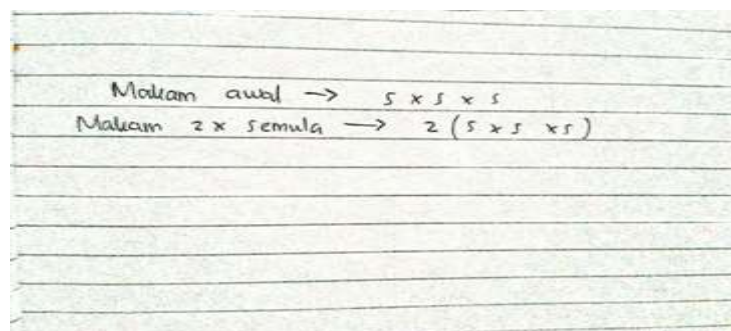 Makam awal → s x s x s
Makam 2x semula → 2 (s x s x s)